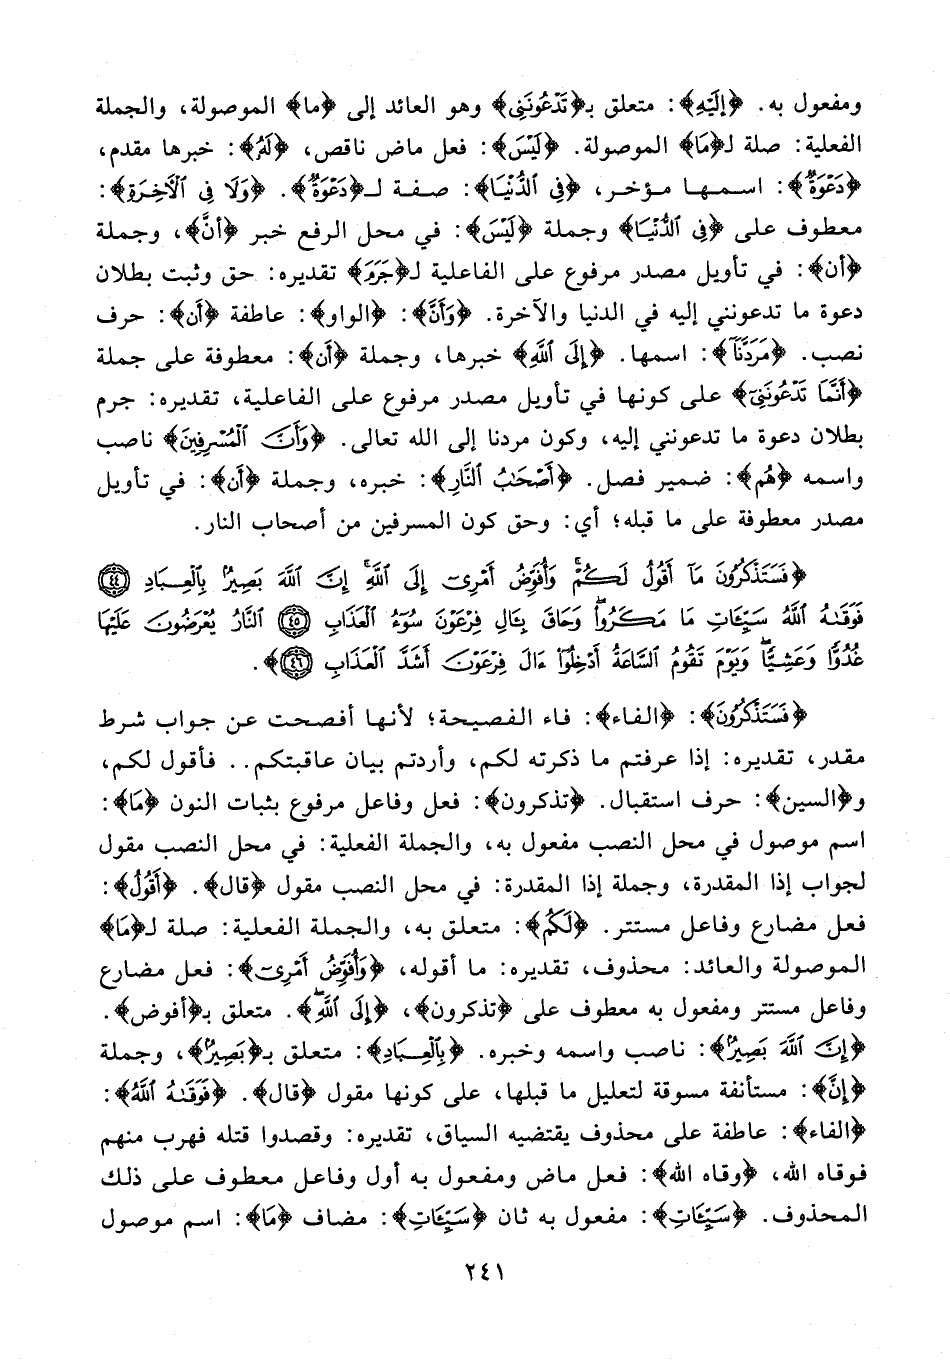 ومفعول به. ﴿إِلَيْهِ﴾: متعلق بـ﴿تَدْعُونَنِي﴾ وهو العائد إلى ﴿ما﴾ الموصولة، والجملة
الفعلية: صلة لـ﴿مَا﴾ الموصولة. ﴿لَيْسَ﴾: فعل ماض ناقص، ﴿لَهُ﴾: خبرها مقدم،
﴿دَعْوَةٌ﴾: اسمها مؤخر، ﴿فِي الدُّنْيَا﴾: صفة لـ﴿دَعْوَةٌ﴾. ﴿وَلَا فِي الْآخِرَةِ﴾:
معطوف على ﴿فِي الدُّنْيَا﴾ وجملة ﴿لَيْسَ﴾: في محل الرفع خبر ﴿أنَّ﴾، وجملة
﴿أن﴾: في تأويل مصدر مرفوع على الفاعلية لـ﴿جَرَمَ﴾ تقديره: حق وثبت بطلان
دعوة ما تدعونني إليه في الدنيا والآخرة. ﴿وَأَنَّ﴾: ﴿الواو﴾: عاطفة ﴿أن﴾: حرف
نصب. ﴿مَرَدَّنَآ﴾: اسمها. ﴿إِلَى اللَّهِ﴾ خبرها، وجملة ﴿أن﴾: معطوفة على جملة
﴿أَنَّمَا تَدْعُونَنِيٓ﴾ على كونها في تأويل مصدر مرفوع على الفاعلية، تقديره: جرم
بطلان دعوة ما تدعونني إليه، وكون مردنا إلى الله تعالى. ﴿وَأَنَّ الْمُسْرِفِينَ﴾ ناصب
واسمه ﴿هُم﴾: ضمير فصل. ﴿أَصْحَٰبُ النَّارِ﴾: خبره، وجملة ﴿أن﴾: في تأويل
مصدر معطوفة على ما قبله؛ أي: وحق كون المسرفين من أصحاب النار.
﴿فَسَتَذْكُرُونَ مَآ أَقُولُ لَكُمْ ۚ وَأُفَوِّضُ أَمْرِيٓ إِلَى اللَّهِ ۚ إِنَّ اللَّهَ بَصِيرٌۢ بِالْعِبَادِ ﴿٤٤﴾
فَوَقَىٰهُ اللَّهُ سَيِّـَٔاتِ مَا مَكَرُوا ۖ وَحَاقَ بِـَٔالِ فِرْعَوْنَ سُوٓءُ الْعَذَابِ ﴿٤٥﴾ النَّارُ يُعْرَضُونَ عَلَيْهَا
غُدُوًّا وَعَشِيًّا ۖ وَيَوْمَ تَقُومُ السَّاعَةُ أَدْخِلُوٓا ءَالَ فِرْعَوْنَ أَشَدَّ الْعَذَابِ ﴿٤٦﴾﴾.
﴿فَسَتَذْكُرُونَ﴾: ﴿الفاء﴾: فاء الفصيحة؛ لأنها أفصحت عن جواب شرط
مقدر، تقديره: إذا عرفتم ما ذكرته لكم، وأردتم بيان عاقبتكم.. فأقول لكم،
و﴿السين﴾: حرف استقبال. ﴿تذكرون﴾: فعل وفاعل مرفوع بثبات النون ﴿مَا﴾:
اسم موصول في محل النصب مفعول به، والجملة الفعلية: في محل النصب مقول
لجواب إذا المقدرة، وجملة إذا المقدرة: في محل النصب مقول ﴿قال﴾. ﴿أَقُولُ﴾:
فعل مضارع وفاعل مستتر. ﴿لَكُمْ﴾: متعلق به، والجملة الفعلية: صلة لـ﴿مَا﴾
الموصولة والعائد: محذوف، تقديره: ما أقوله، ﴿وَأُفَوِّضُ أَمْرِيٓ﴾: فعل مضارع
وفاعل مستتر ومفعول به معطوف على ﴿تذكرون﴾، ﴿إِلَى اللَّهِ ۚ﴾. متعلق بـ﴿أفوض﴾.
﴿إِنَّ اللَّهَ بَصِيرٌ﴾: ناصب واسمه وخبره. ﴿بِالْعِبَادِ﴾: متعلق بـ﴿بَصِيرٌ﴾، وجملة
﴿إِنَّ﴾: مستأنفة مسوقة لتعليل ما قبلها، على كونها مقول ﴿قال﴾. ﴿فَوَقَىٰهُ اللَّهُ﴾:
﴿الفاء﴾: عاطفة على محذوف يقتضيه السياق، تقديره: وقصدوا قتله فهرب منهم
فوقاه الله، ﴿وقاه الله﴾: فعل ماض ومفعول به أول وفاعل معطوف على ذلك
المحذوف. ﴿سَيِّـَٔاتِ﴾: مفعول به ثان ﴿سَيِّـَٔاتِ﴾: مضاف ﴿مَا﴾: اسم موصول
٢٤١